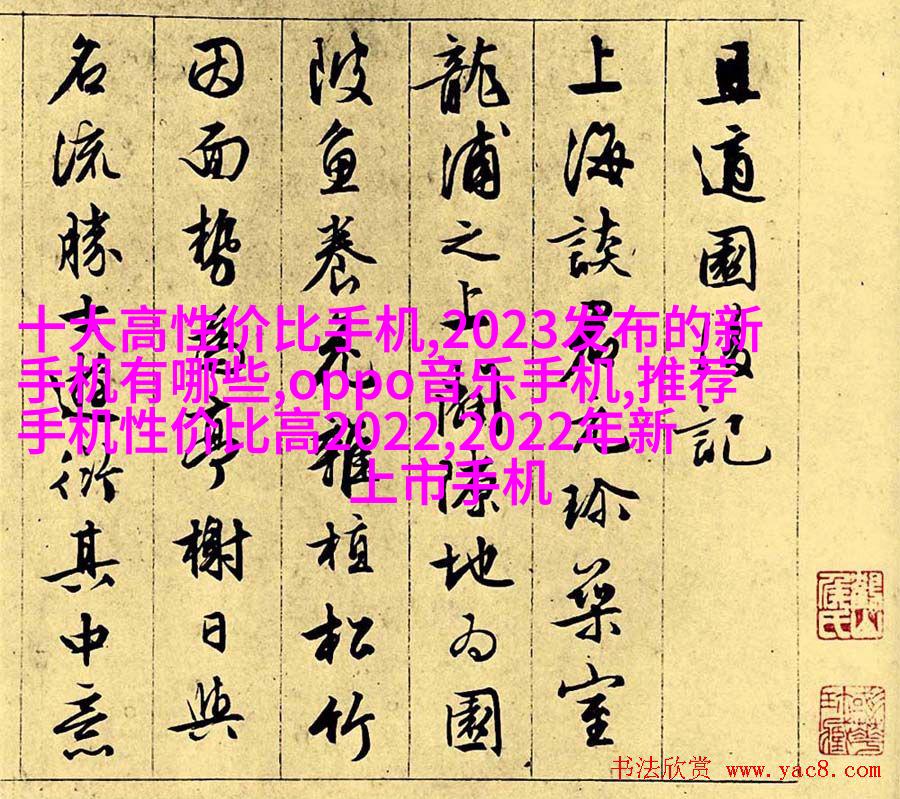 且適園後記
上海談君元珍築室
龍浦之上闢隙地為園
陂魚養花雜植松竹
因面勢為亭榭日與
名流勝士遊衍其中意
十大高性价比手机,2023发布的新
手机有哪些,oppo音乐手机,推荐
手机性价比高2022,2022年新
上市手机
书法欣赏 www.yac8.com